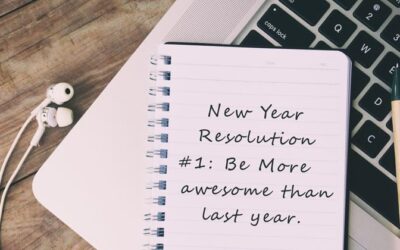 New Year
Resolution
#1: Be More
awesome than
last year.
caps lock